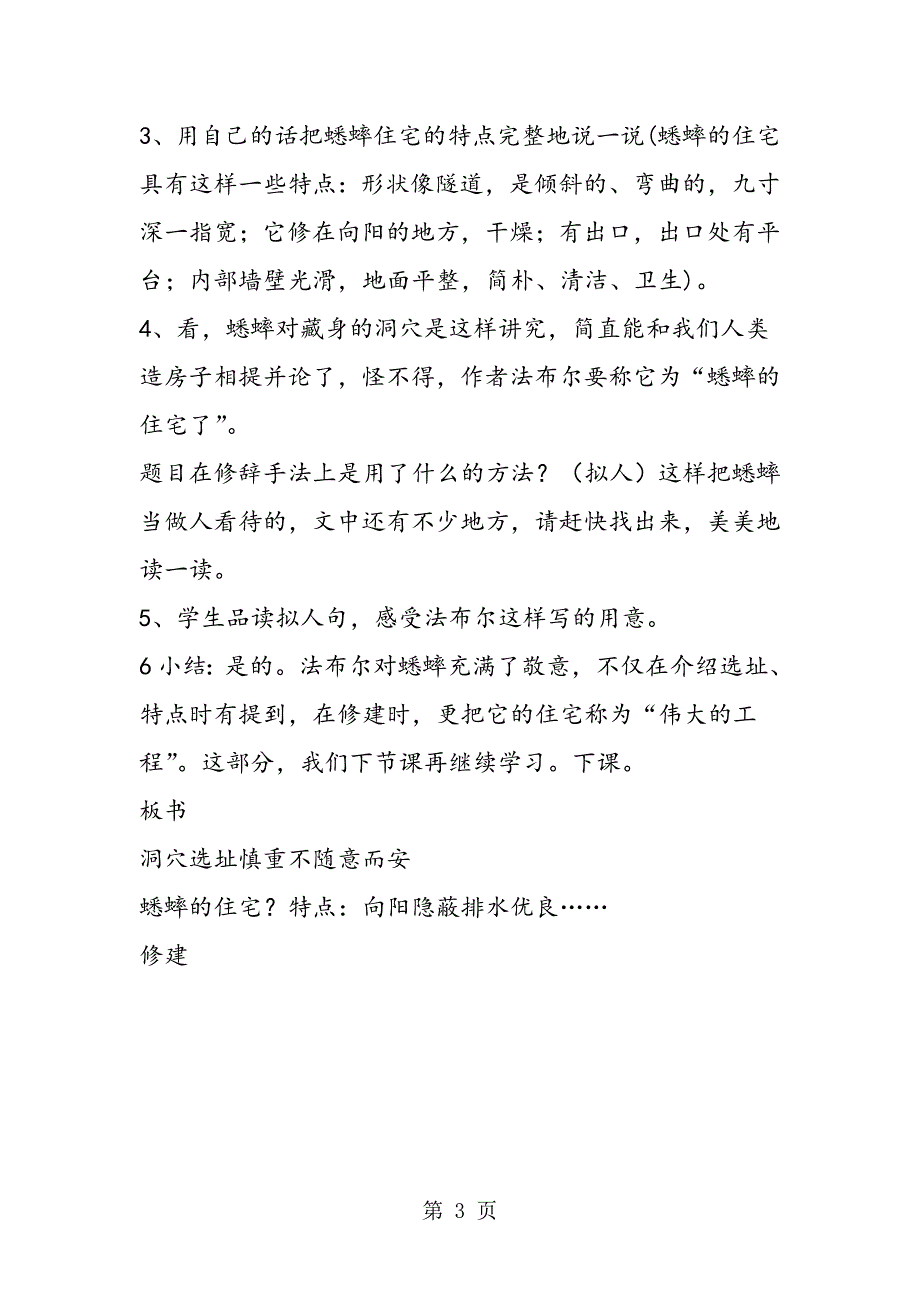 3、用自己的话把蟋蟀住宅的特点完整地说一说(蟋蟀的住宅
具有这样一些特点：形状像隧道，是倾斜的、弯曲的，九寸
深一指宽；它修在向阳的地方，干燥；有出口，出口处有平
台；内部墙壁光滑，地面平整，简朴、清洁、卫生)。
4、看，蟋蟀对藏身的洞穴是这样讲究，简直能和我们人类
造房子相提并论了，怪不得，作者法布尔要称它为“蟋蟀的
住宅了”。
题目在修辞手法上是用了什么的方法？（拟人）这样把蟋蟀
当做人看待的，文中还有不少地方，请赶快找出来，美美地
读一读。
5、学生品读拟人句，感受法布尔这样写的用意。
6小结：是的。法布尔对蟋蟀充满了敬意，不仅在介绍选址、
特点时有提到，在修建时，更把它的住宅称为“伟大的工
程”。这部分，我们下节课再继续学习。下课。
板书
洞穴选址慎重不随意而安
蟋蟀的住宅？特点：向阳隐蔽排水优良……
修建
第 3 页